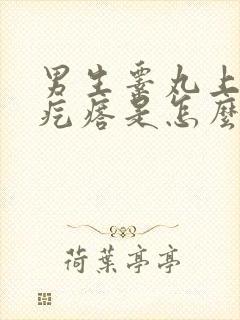 男生睾丸上
疙瘩是怎麼
荷葉亭亭